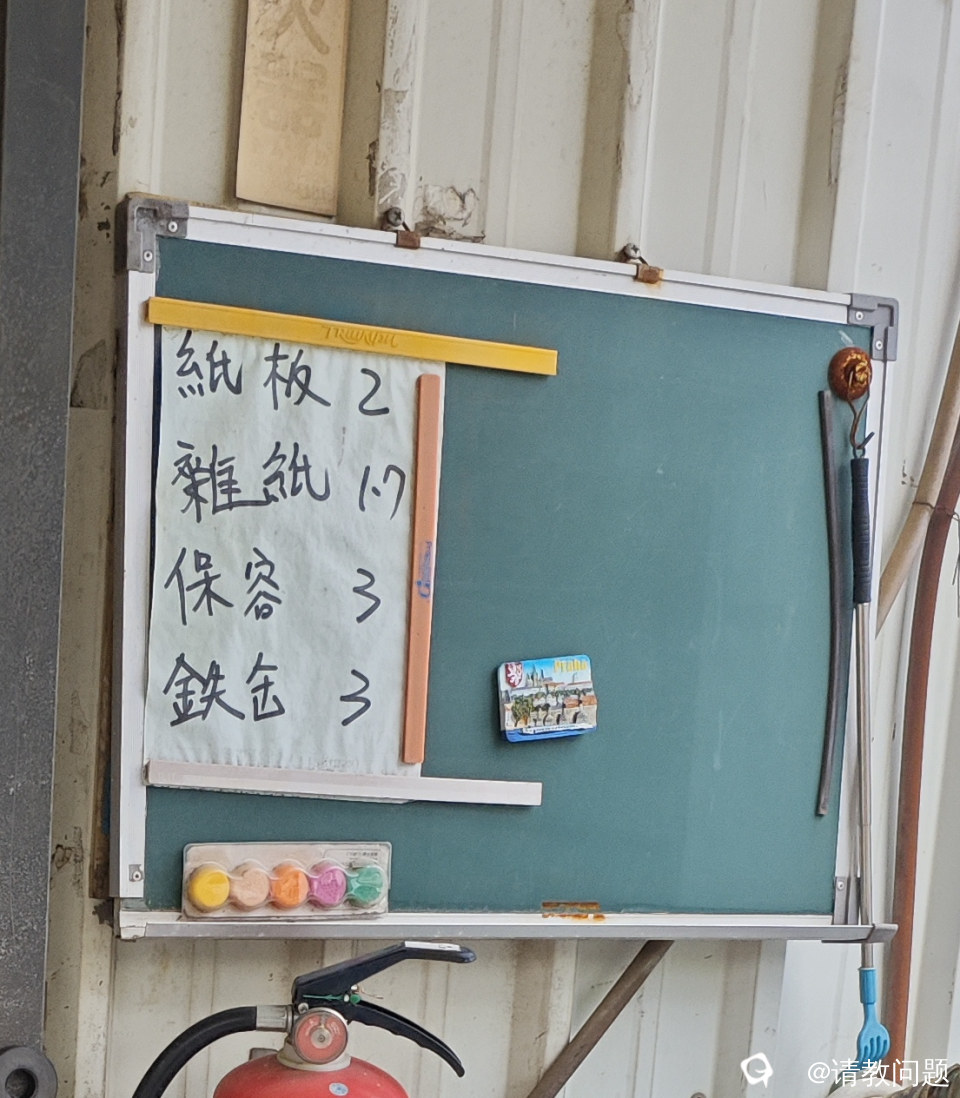 火器
紙板 2
雜紙 1.7
保容 3
鉄缶 3
Praha
@请教问题